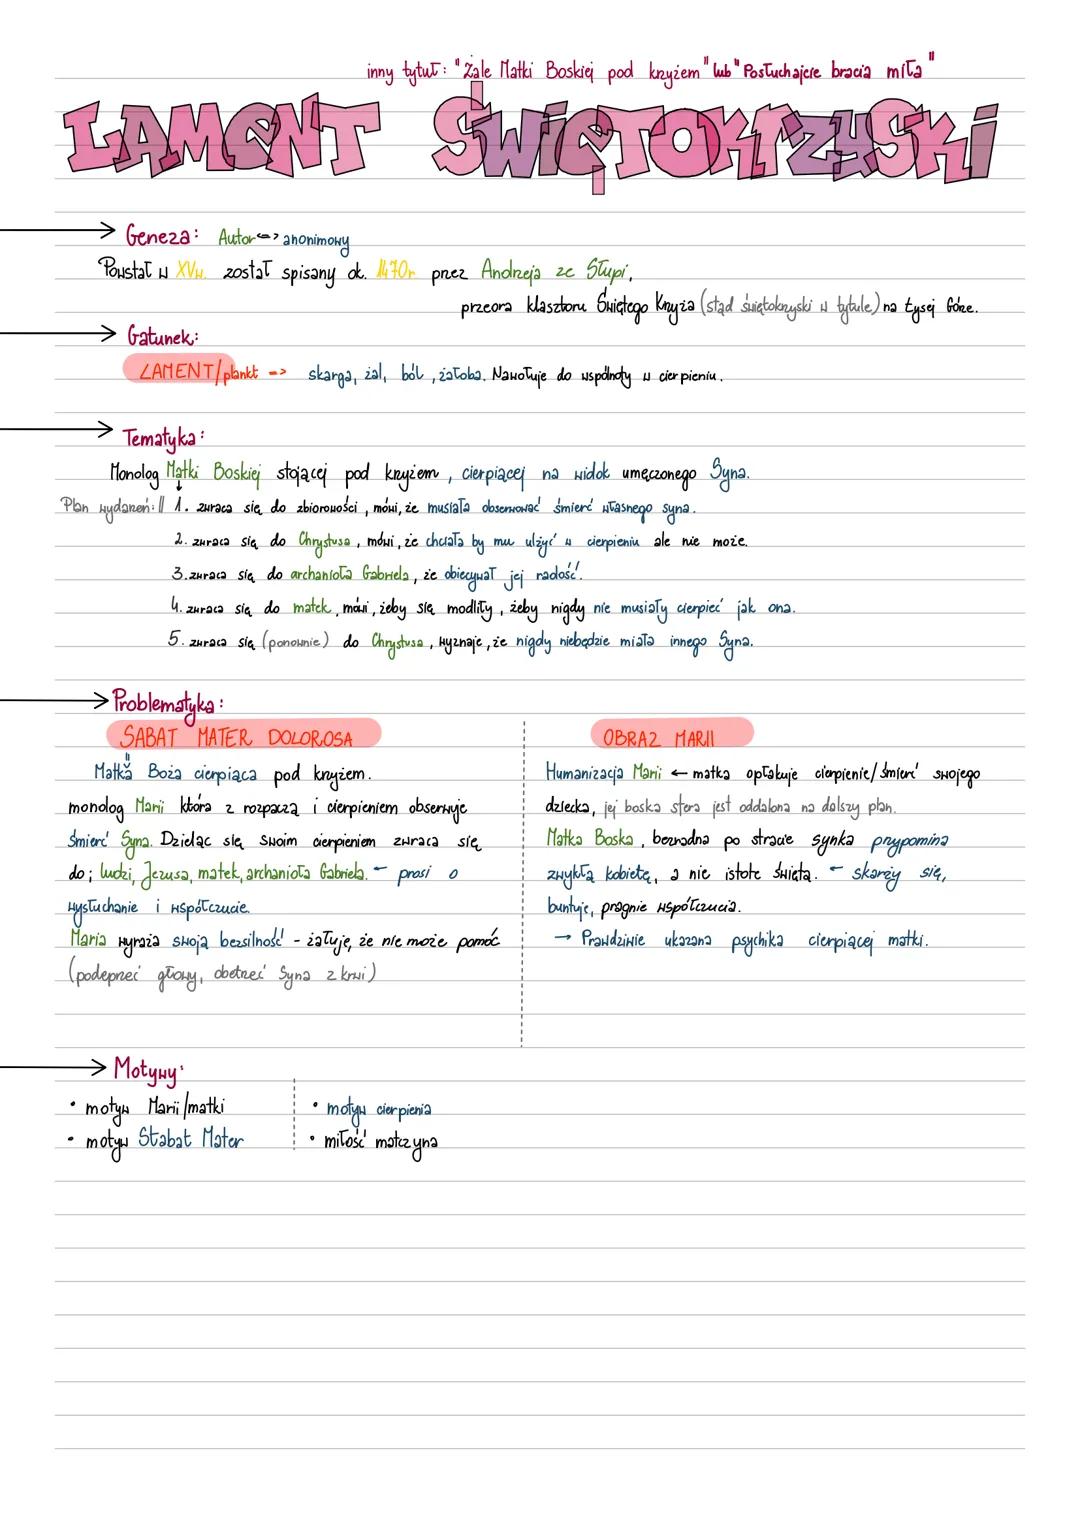 inny tytuł: "Żale Matki Boskiej pod krzyżem" lub "Posłuchajcie bracia miła"
LAMENT ŚWIĘTOKRZYSKI
Geneza: Autor <=> anonimowy
Powstał w XVw. został spisany ok. 1470r przez Andrzeja ze Słupi,
przeora klasztoru Świętego Krzyża (stąd świętokrzyski w tytule) na Łysej Górze.
Gatunek:
LAMENT/plankt => skarga, żal, ból, żałoba. Nawołuje do wspólnoty w cierpieniu.
Tematyka:
Monolog Matki Boskiej stojącej pod krzyżem, cierpiącej na widok umęczonego Syna.
Plan wydarzeń: 1. zwraca się do zbiorowości, mówi, że musiała obserwować śmierć własnego syna.
2. zwraca się do Chrystusa, mówi, że chciała by mu ulżyć w cierpieniu ale nie może.
3. zwraca się do archanioła Gabriela, że obiecywał jej radość.
4. zwraca się do matek, mówi, żeby się modliły, żeby nigdy nie musiały cierpieć jak ona.
5. zwraca się (ponownie) do Chrystusa, wyznaje, że nigdy niebędzie miała innego Syna.
Problematyka:
SABAT MATER DOLOROSA
Matka Boża cierpiąca pod krzyżem.
monolog Marii która z rozpaczą i cierpieniem obserwuje
śmierć Syna. Dzieląc się swoim cierpieniem zwraca się
do; ludzi, Jezusa, matek, archanioła Gabriela. ← prosi o
wysłuchanie i współczucie.
Maria wyraża swoją bezsilność - żałuję, że nie może pomóc
(podeprzeć głowy, obetrzeć Syna z krwi)
OBRAZ MARII
Humanizacja Marii ← matka opłakuje cierpienie/śmierć swojego
dziecka, jej boska sfera jest oddalona na dalszy plan.
Matka Boska, bezradna po stracie synka przypomina
zwykłą kobietę, a nie istotę świętą. ← skarży się,
buntuje, pragnie współczucia.
→ Prawdziwie ukazana psychika cierpiącej matki.
Motywy:
• motyw Marii/matki
• motyw Stabat Mater
• motyw cierpienia
• miłość matczyna